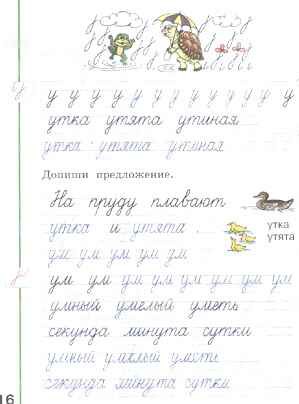 у у у у у у у у у у у у
утка утята утиная
утка утята утиная
Допиши предложение.
На пруду плавают
утка и утята .
утка
утята
ум ум ум ум ум
ум ум ум ум ум ум ум ум
умный умелый уметь
секунда минута сутки
умный умелый уметь
секунда минута сутки
16